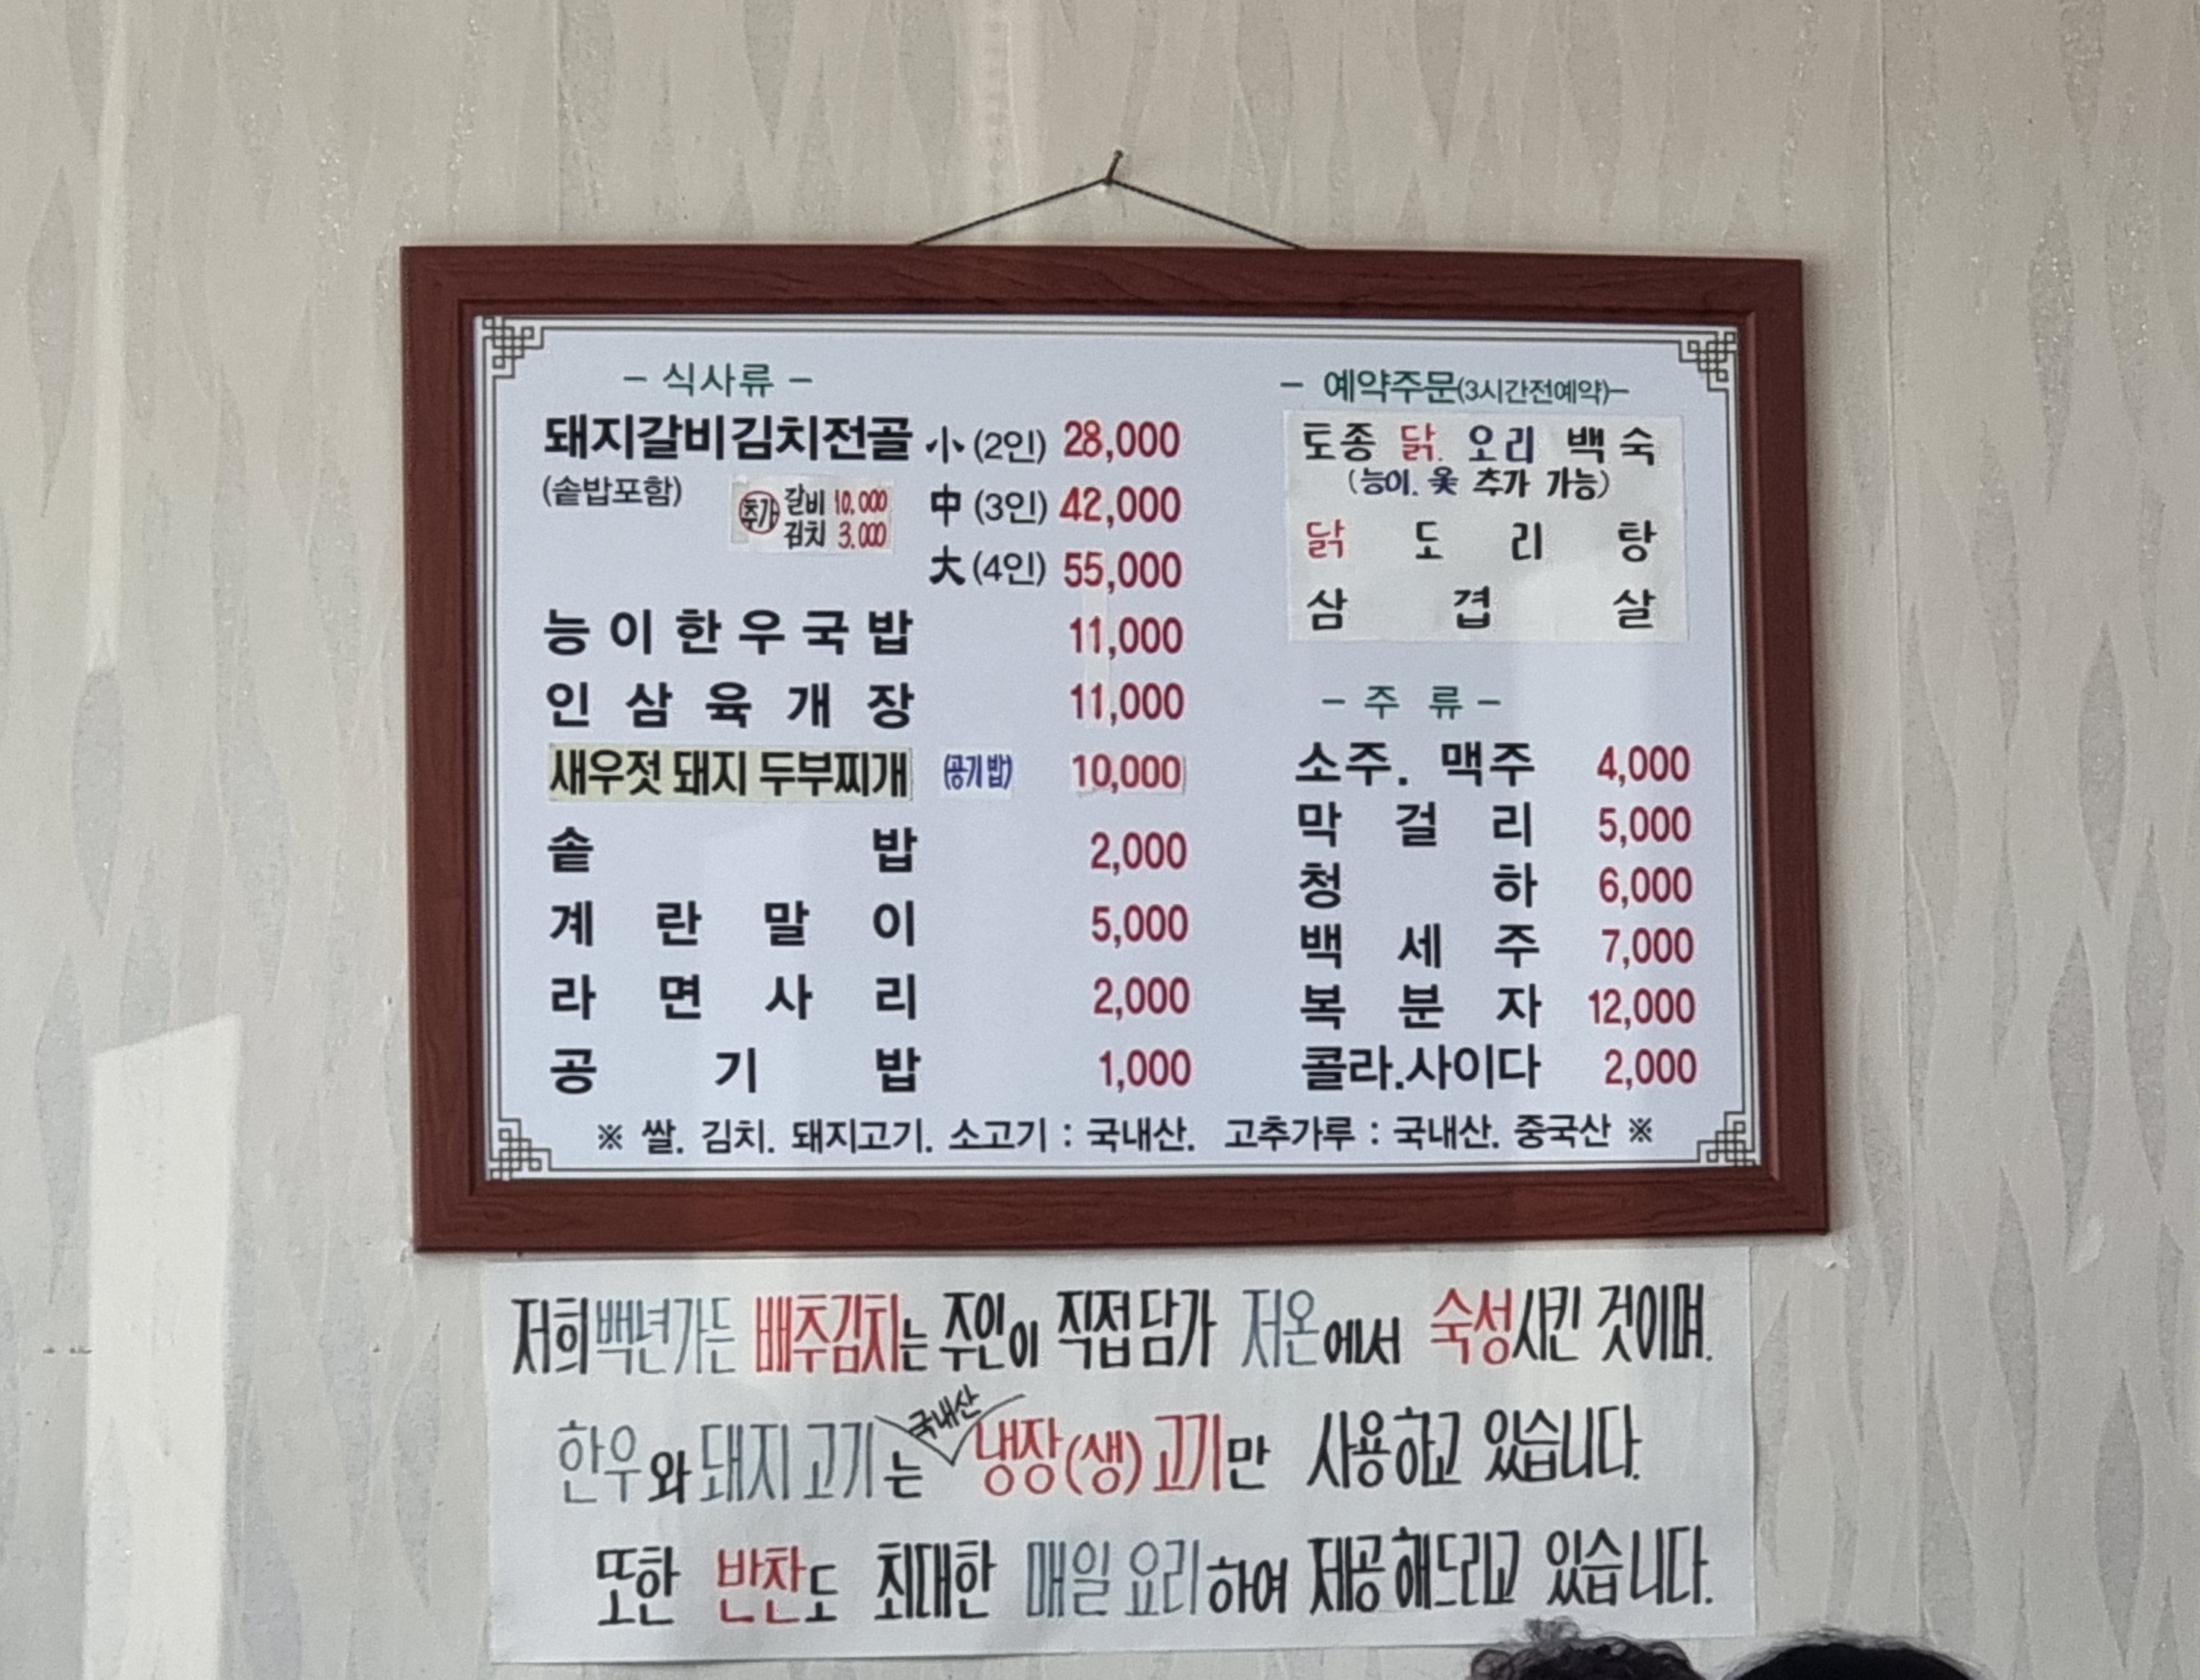 - 식사류 -
돼지갈비김치전골 小 (2인) 28,000
(솥밥포함)
추가 갈비 10.000
김치 3.000
中 (3인) 42,000
大 (4인) 55,000
능이한우국밥 11,000
인삼육개장 11,000
새우젓 돼지 두부찌개 (공기밥) 10,000
솥밥 2,000
계란말이 5,000
라면사리 2,000
공기밥 1,000
- 예약주문(3시간전예약)-
토종 닭. 오리 백숙
(능이. 옻 추가 가능)
닭도리탕
삼겹살
- 주류 -
소주. 맥주 4,000
막걸리 5,000
청하 6,000
백세주 7,000
복분자 12,000
콜라.사이다 2,000
※ 쌀. 김치. 돼지고기. 소고기 : 국내산. 고추가루 : 국내산. 중국산 ※
저희 백년가든 배추김치는 주인이 직접 담가 저온에서 숙성시킨 것이며.
한우와 돼지고기는 국내산 냉장(생)고기만 사용하고 있습니다.
또한 반찬도 최대한 매일 요리하여 제공해드리고 있습니다.